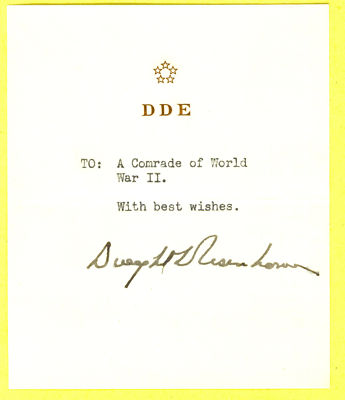 DDE
TO: A Comrade of World
War II.
With best wishes.
Dwight D Eisenhower